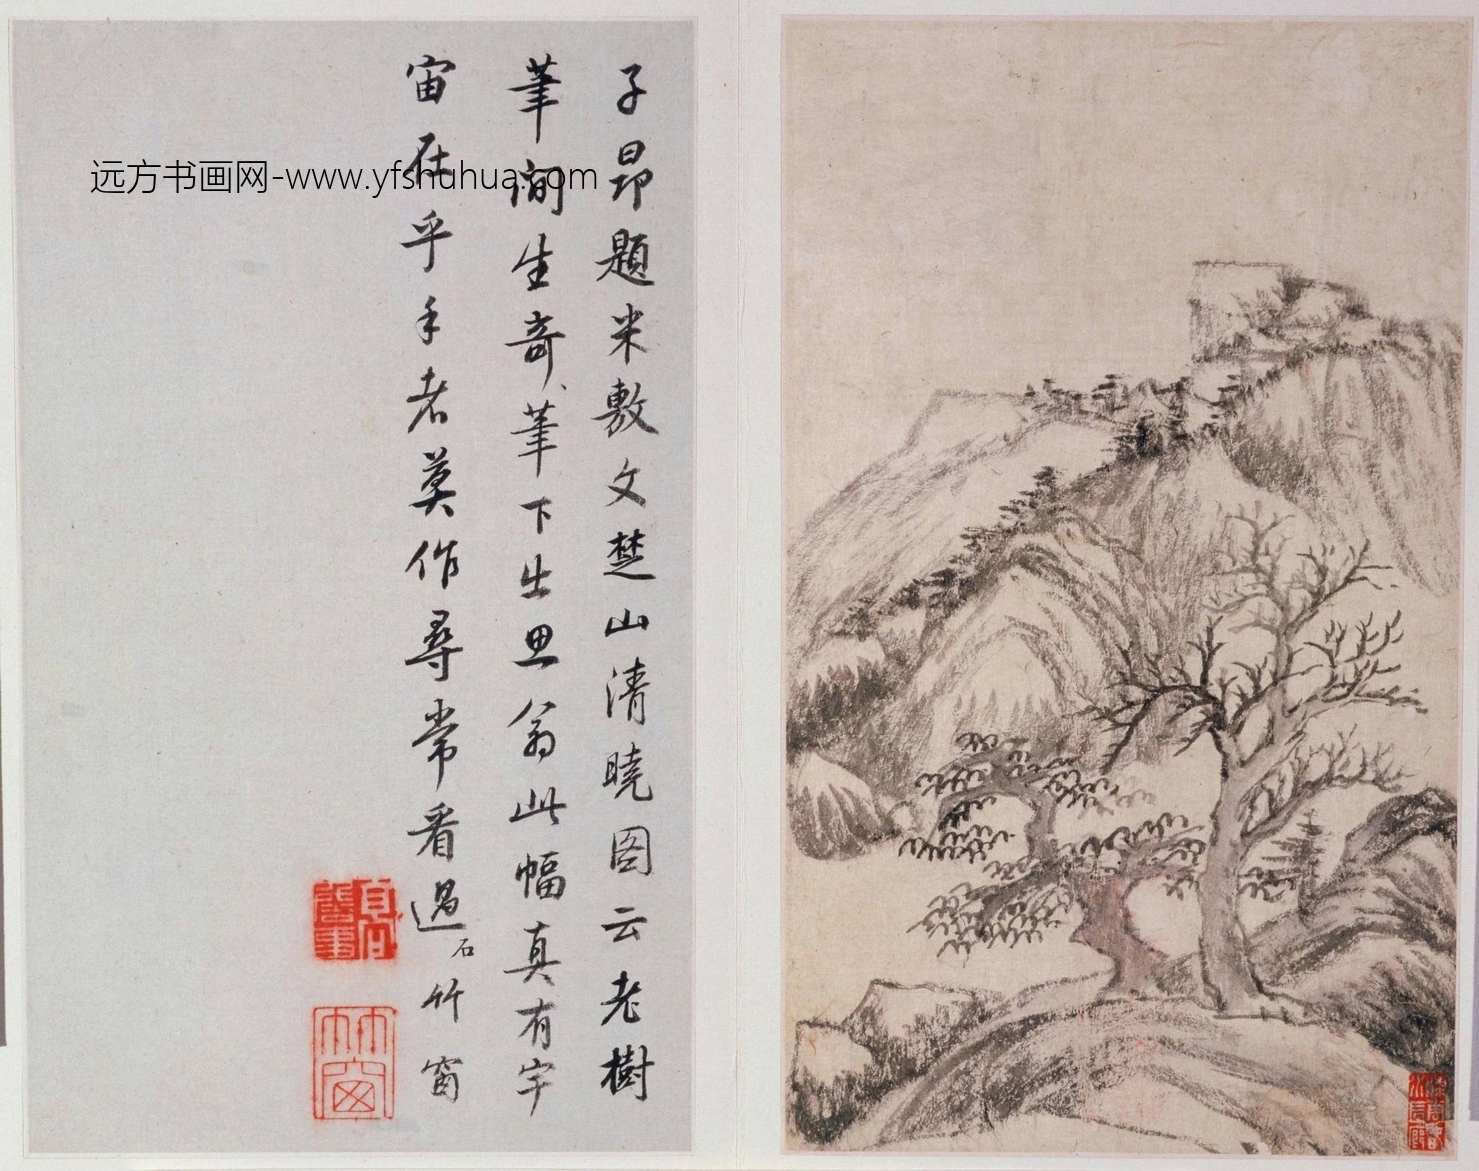 子昂題米敷文楚山清曉图云老樹
筆间生奇筆下出思翁此幅真有宇
宙在乎手者莫作尋常看過 石竹窗
远方书画网-www.yfshuhua.com